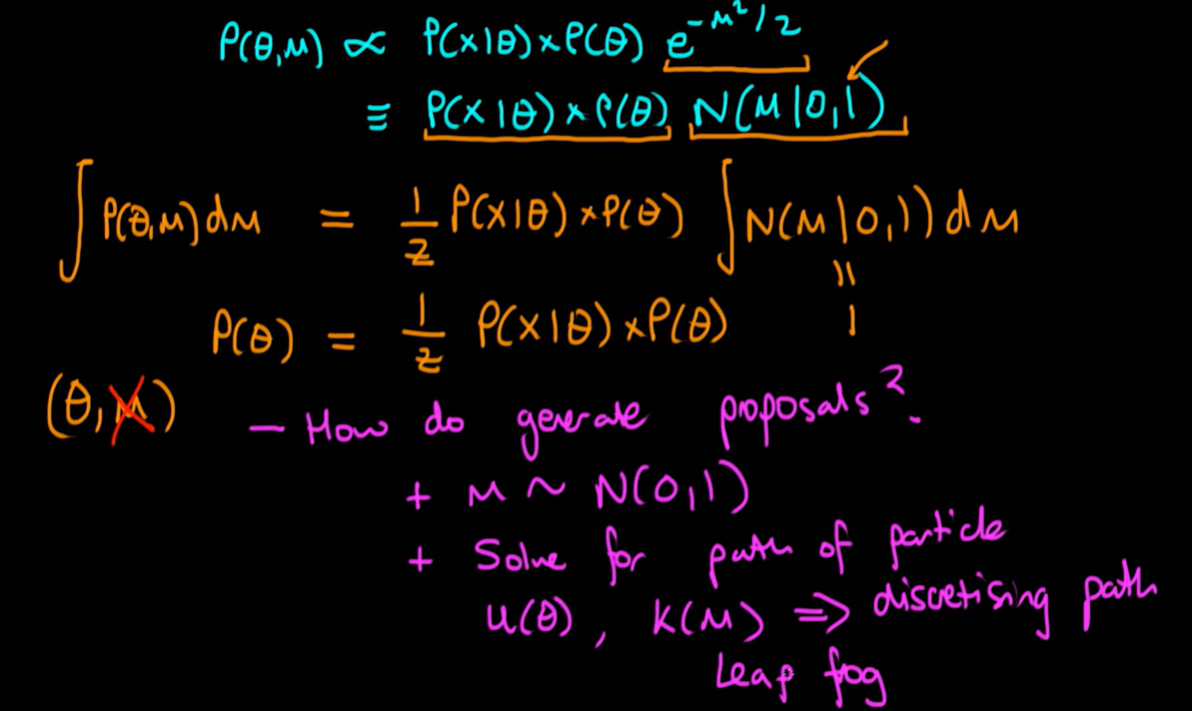 P(θ,M) ∝ P(X|θ)×P(θ) e^{-M²/2}
≡ P(X|θ)×P(θ) N(M|0,1)
∫P(θ,M)dM = 1/Z P(X|θ)×P(θ) ∫N(M|0,1)dM
P(θ) = 1/Z P(X|θ)×P(θ) = 1
(θ,M) - How do generate proposals?
+ M ~ N(0,1)
+ Solve for path of particle
U(θ), K(M) => discretising path
Leap fog